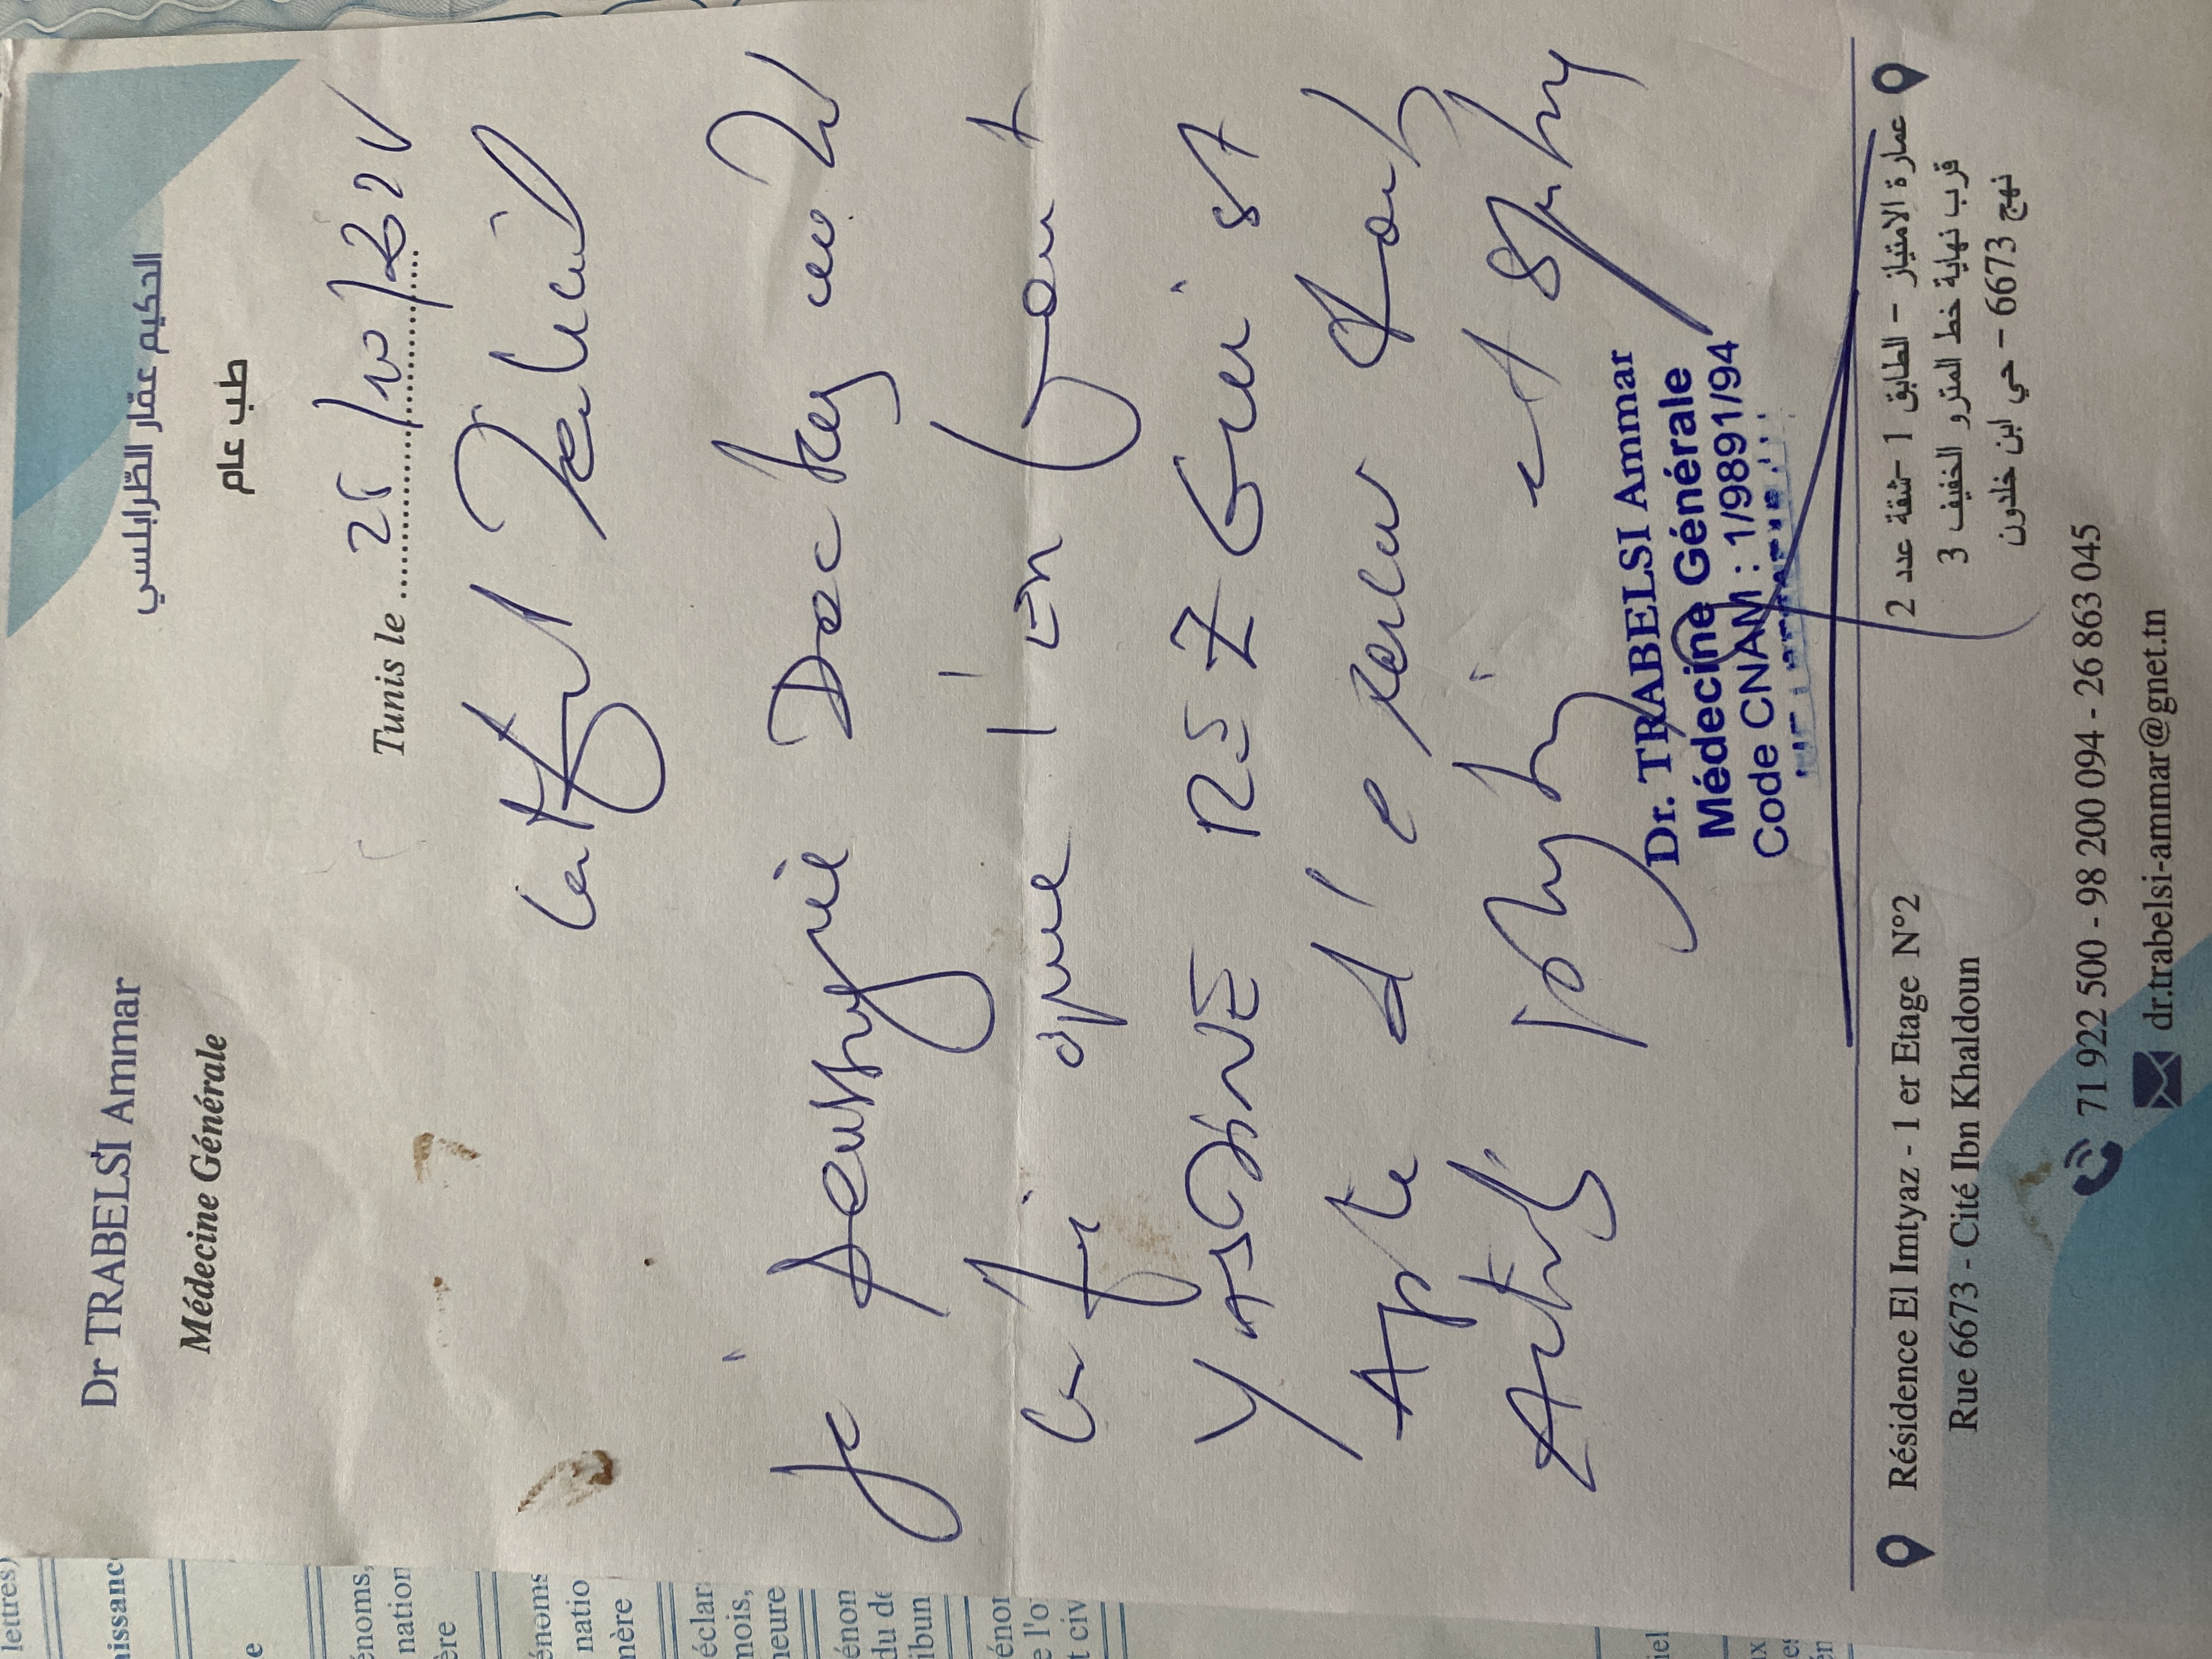 Dr TRABELSI Ammar
Médecine Générale
الحكيم عمّار الطّرابلسي
طب عام
Tunis le 25/10/202
Certificat Médical
Je soussigné Docteur en
certifie que l'Enfant
YASSINE est
Apte d'exercer
Activité physique et sportive
Dr. TRABELSI Ammar
Médecine Générale
Code CNAM : 1/9891/94
Résidence El Imtyaz - 1 er Etage N°2
Rue 6673 - Cité Ibn Khaldoun
عمارة الامتياز – الطابق 1 – شقة عدد 2
قرب نهاية خط المترو الخفيف 3
نهج 6673 – حي ابن خلدون
71 922 500 - 98 200 094 - 26 863 045
dr.trabelsi-ammar@gnet.tn
lettres)
énoms,
nation
ère
énoms
natio
mère
éclar
mois,
heure
énon
du de
ibun
énor
e l'o
t civ